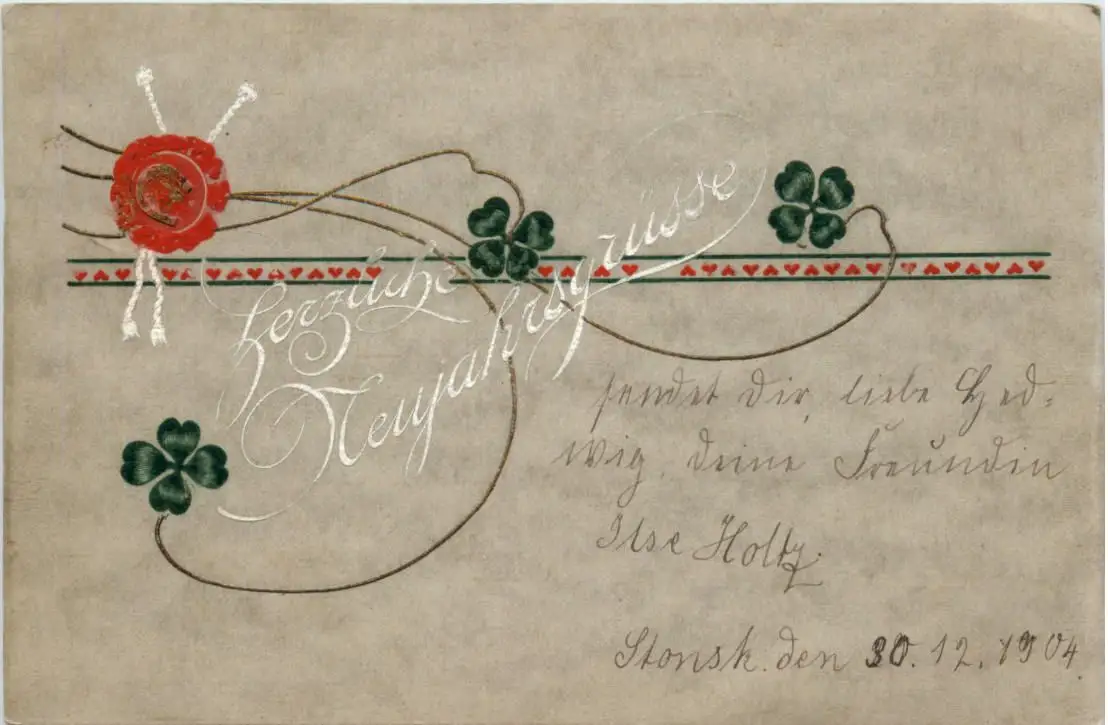 Herzliche
Neujahrsgrüsse
sendet Dir, liebe Hed=
wig, Deine Freundin
Ilse Holtz.
Stonsk. den 30. 12. 1904.